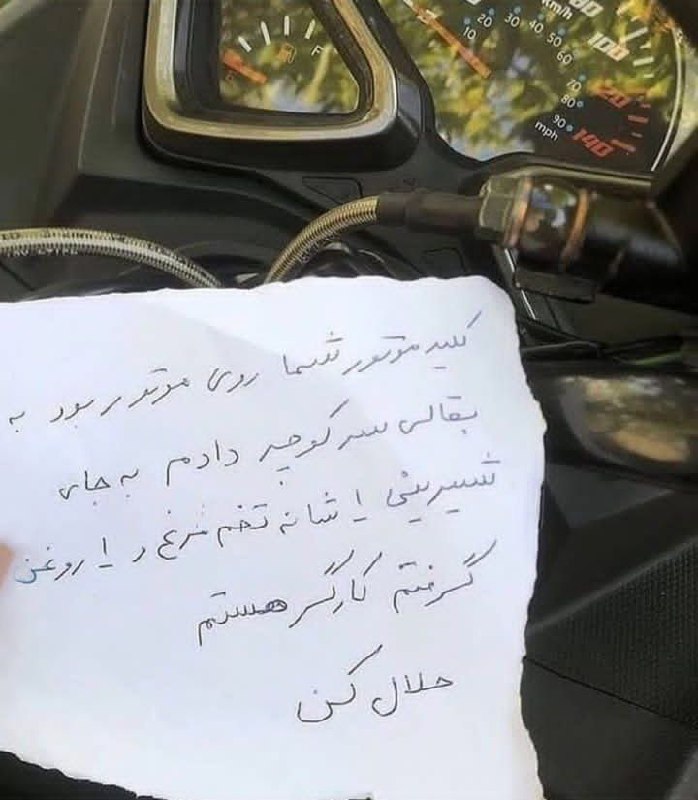 F
E
10
20
30
40
50
60
70
80
90
mph
km/h
100
120
140
کلید موتور شما روی موتور بود به
بقالی سر کوچه دادم به جای
شیرینی ۱ شانه تخم مرغ و ۱ روغن
گرفتم کارگر هستم
حلال کن